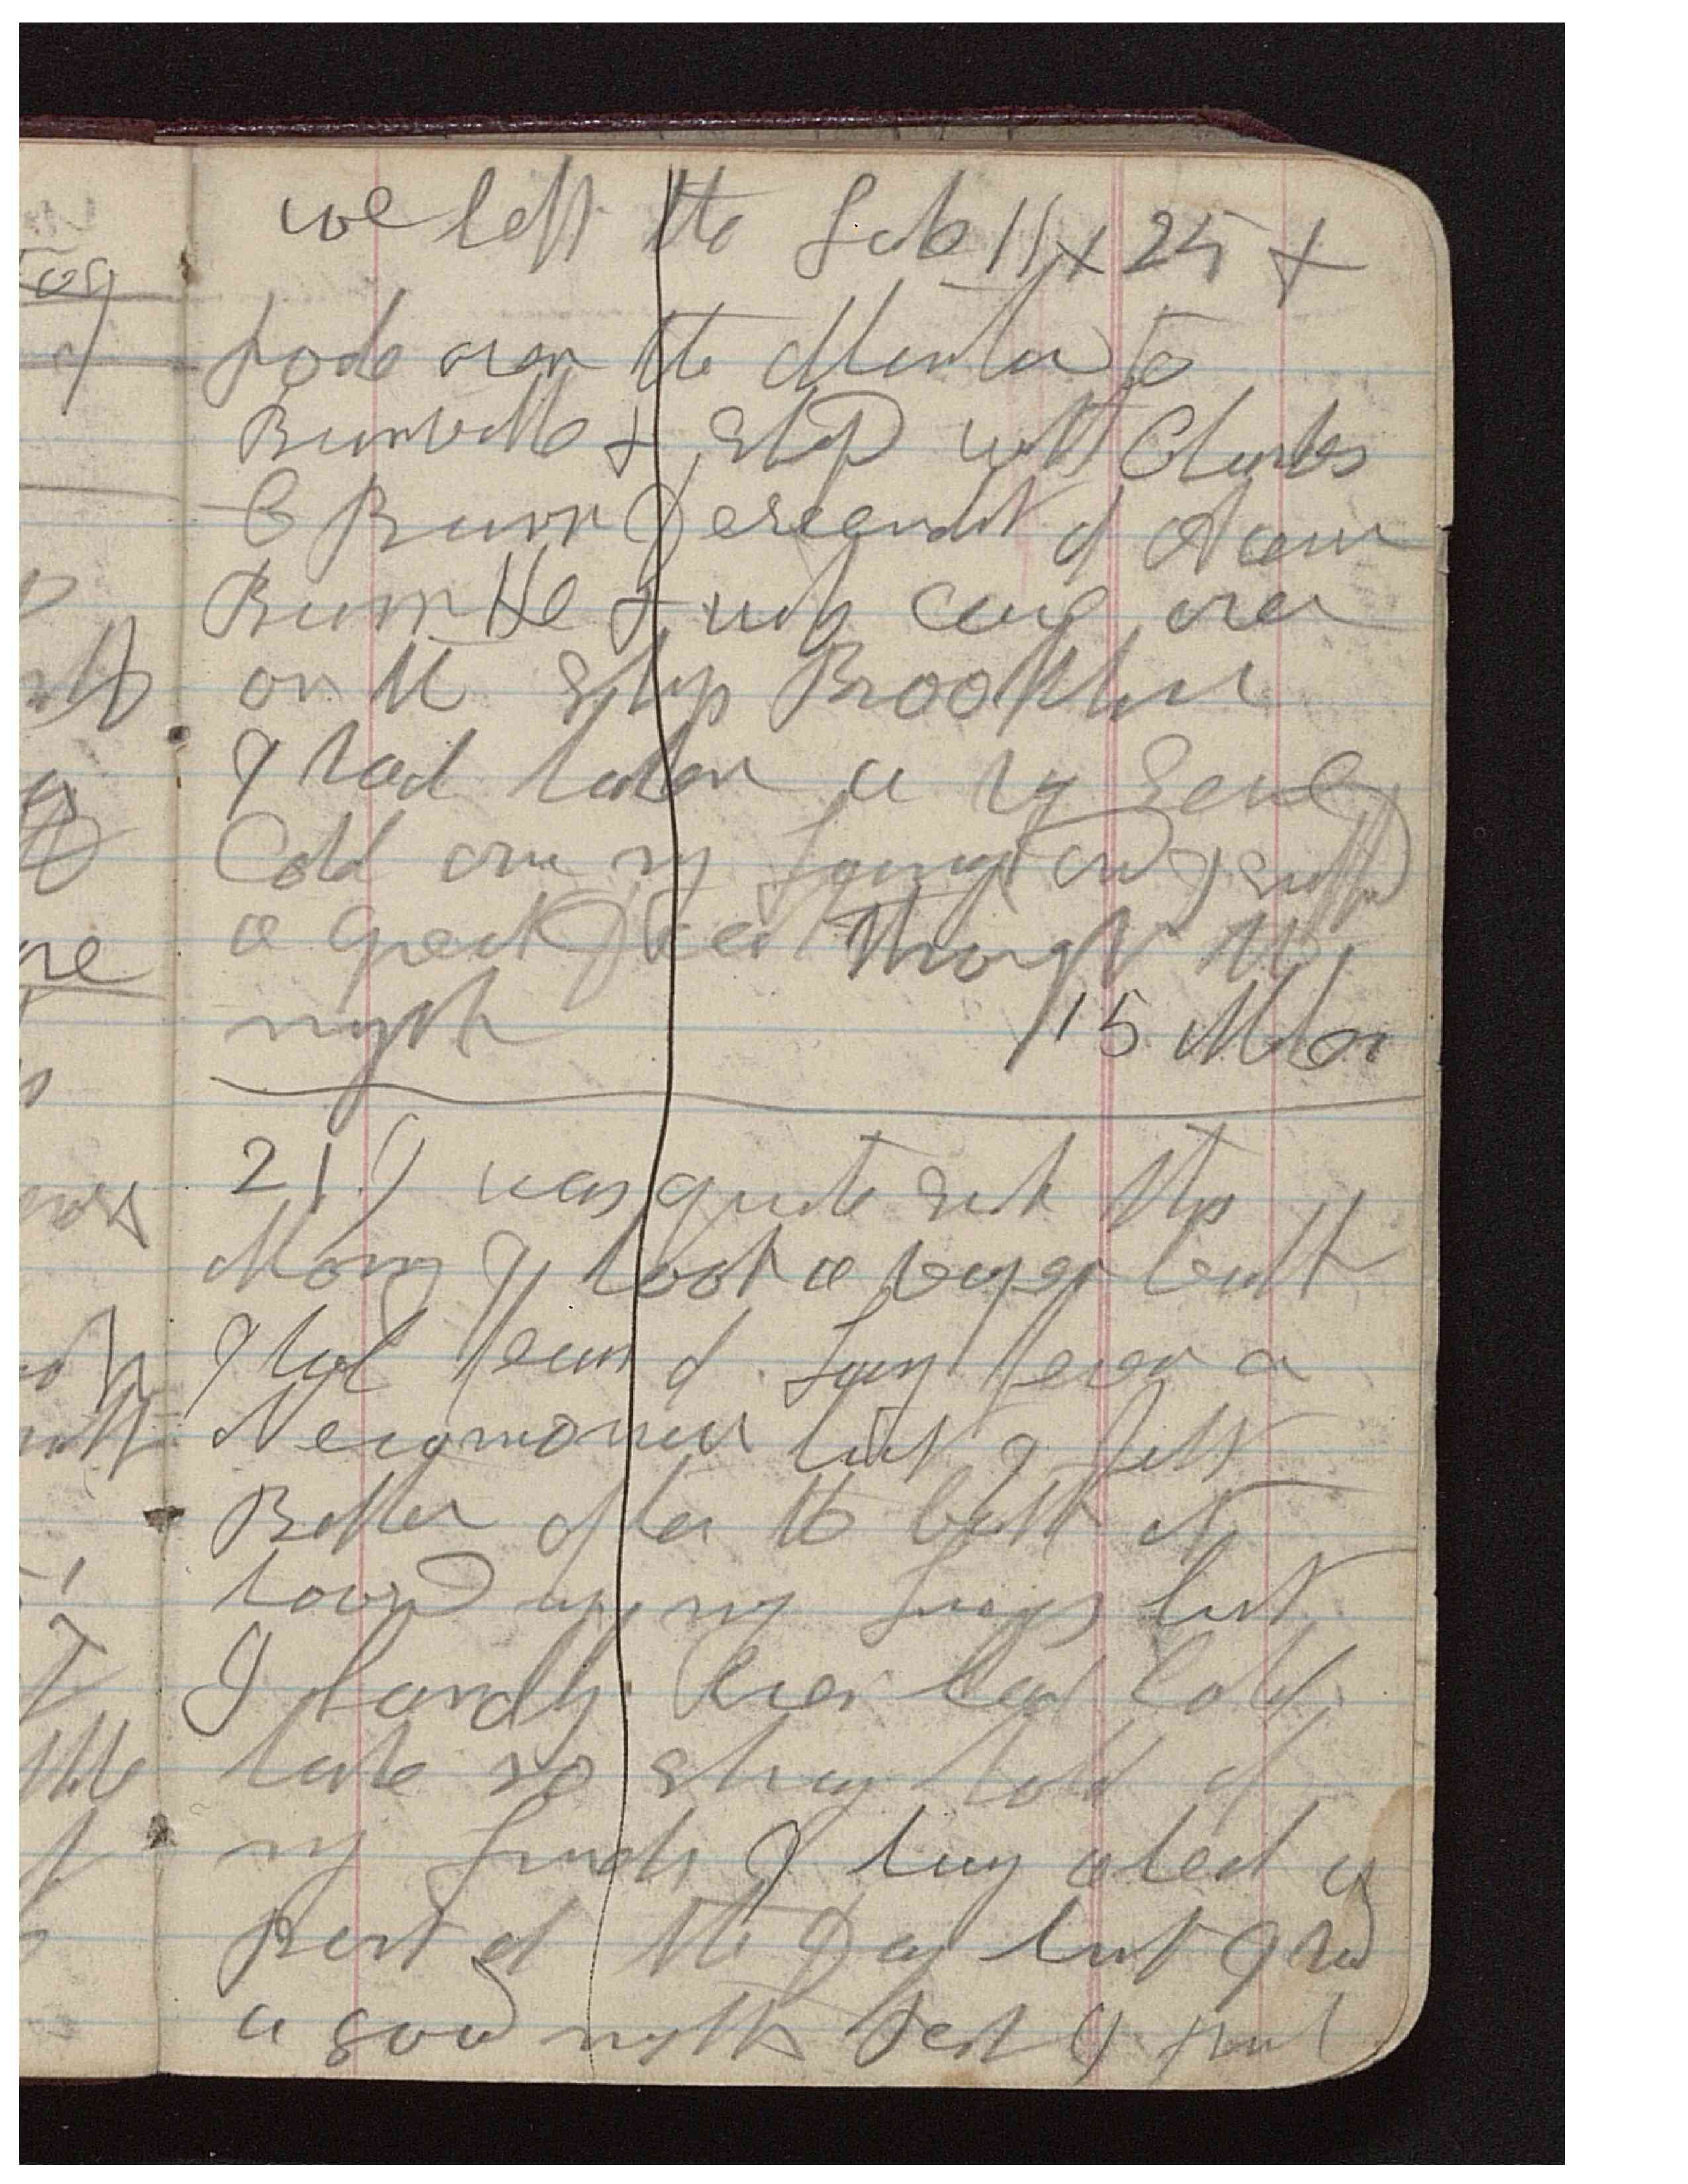 we left the Lake 11 x 25 &
rode over the Mountain to
Burrville & stop with Charles
C Burr Descendant of Aaron
Burr He & wife came over
on the Ship Brooklin
I had taken a very Severe
Cold on my Lungs and I suffed
a great Deal through the
night 15 Miles
21 I was quite sick this
Morng I took a vapor bath
I had fears of Lung fever or
Neumonia but I felt
Better after the bath it
loosed up my Lungs but
I hardly Ever had Cold
take so strong hold of
my Lungs I lay abed a
part of the Day but I had
a good nights rest I